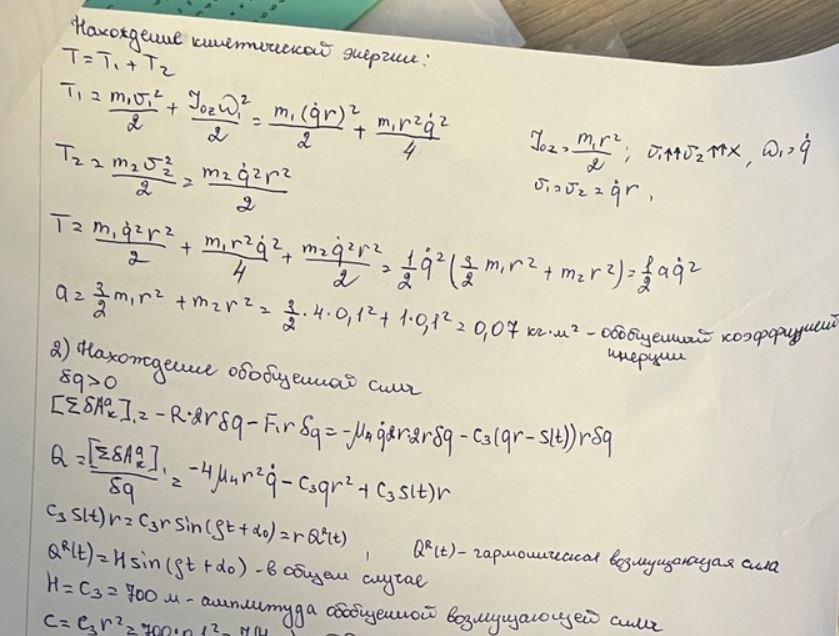 Нахождение кинетической энергии:
T = T₁ + T₂
T₁ = m₁υ₁²/2 + J₀z ω₁²/2 = m₁(q̇r)²/2 + m₁r²q̇²/4
J₀z = m₁r²/2 ; υ₁↑↑υ₂↑↑x, ω₁ = q̇
υ₁ = υ₂ = q̇r,
T₂ = m₂υ₂²/2 = m₂q̇²r²/2
T = m₁q̇²r²/2 + m₁r²q̇²/4 + m₂q̇²r²/2 = 1/2 q̇²(3/2 m₁r² + m₂r²) = 1/2 aq̇²
a = 3/2 m₁r² + m₂r² = 3/2 · 4 · 0,1² + 1 · 0,1² = 0,07 кг·м² - обобщенный коэффициент
инерции
2) Нахождение обобщенной силы
δq>0
[ΣδAₖᵃ]₁ = -R·2rδq - F₁rδq = -μ₄q̇2r·2rδq - c₃(qr - s(t))rδq
Q = [ΣδAₖᵃ]₁/δq = -4μ₄r²q̇ - c₃qr² + c₃s(t)r
c₃s(t)r = c₃r sin(ρt+α₀) = rQᴿ(t) , Qᴿ(t) - гармоническая возмущающая сила
Qᴿ(t) = H sin(ρt+α₀) - в общем случае
H = c₃ = 700 м - амплитуда обобщенной возмущающей силы
C = c₃r² = 700·0,1² = 7